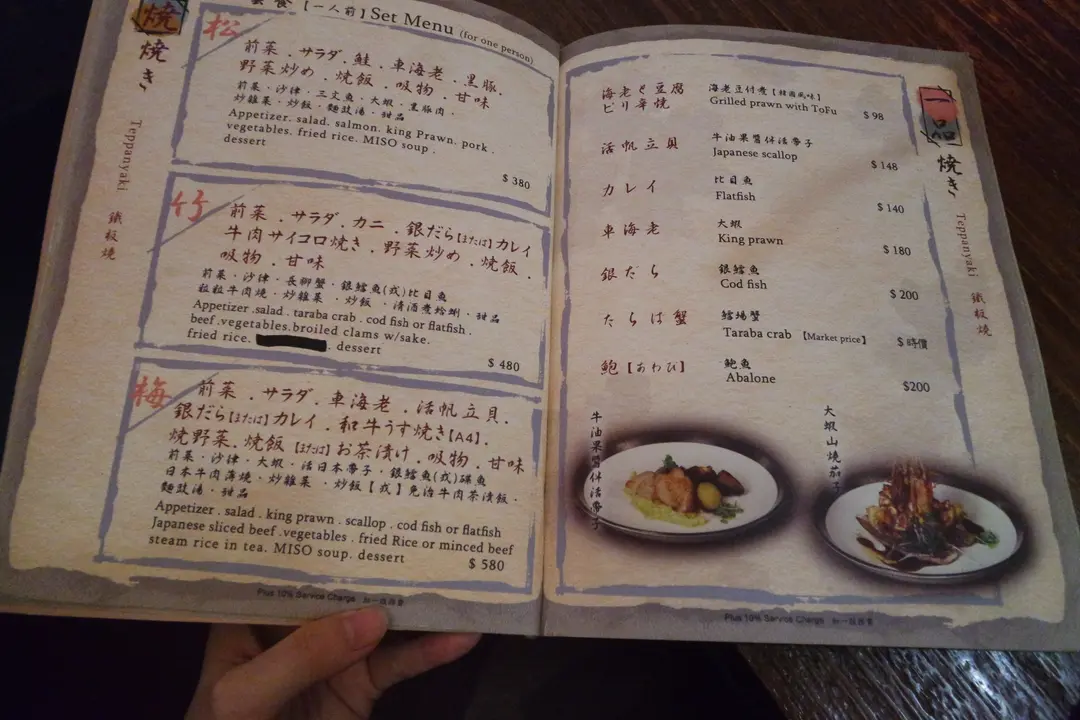 焼
焼き
Teppanyaki
鐵板燒
【一人前】Set Menu (for one person)
松
前菜.サラダ.鮭.車海老.黒豚.
野菜炒め.焼飯.吸物.甘味
前菜・沙律・三文魚・大蝦・黑豚肉・
炒雜菜・炒飯・麵豉湯・甜品
Appetizer. salad. salmon. king Prawn. pork .
vegetables. fried rice. MISO soup .
dessert
$ 380
竹
前菜.サラダ.カニ.銀だら【または】カレイ
牛肉サイコロ焼き.野菜炒め.焼飯.
吸物.甘味
前菜・沙律・長脚蟹・銀鱈魚(或)比目魚
粒粒牛肉燒・炒雜菜・炒飯・清酒煮蛤蜊・甜品
Appetizer .salad . taraba crab . cod fish or flatfish .
beef .vegetables.broiled clams w/sake.
fried rice. . dessert
$ 480
梅
前菜.サラダ.車海老.活帆立貝.
銀だら【または】カレイ.和牛うす焼き【A4】.
焼野菜.焼飯【または】お茶漬け.吸物.甘味
前菜・沙律・大蝦・活日本帶子・銀鱈魚(或)碟魚
日本牛肉薄燒・炒雜菜・炒飯【或】免治牛肉茶漬飯・
麵豉湯・甜品
Appetizer . salad . king prawn . scallop . cod fish or flatfish
Japanese sliced beef .vegetables . fried Rice or minced beef
steam rice in tea. MISO soup. dessert
$ 580
Plus 10% Service Charge 加一服務費
一品
焼き
Teppanyaki
鐵板燒
海老と豆腐
ピリ辛焼
海老豆付煮【韓國風味】
Grilled prawn with ToFu
$ 98
活帆立貝
牛油果醬伴活帶子
Japanese scallop
$ 148
カレイ
比目魚
Flatfish
$ 140
車海老
大蝦
King prawn
$ 180
銀だら
銀鱈魚
Cod fish
$ 200
たらば蟹
鱈場蟹
Taraba crab 【Market price】
$ 時價
鮑【あわび】
鮑魚
Abalone
$200
牛油果醬伴活帶子
大蝦山燒茄子
Plus 10% Service Charge 加一服務費